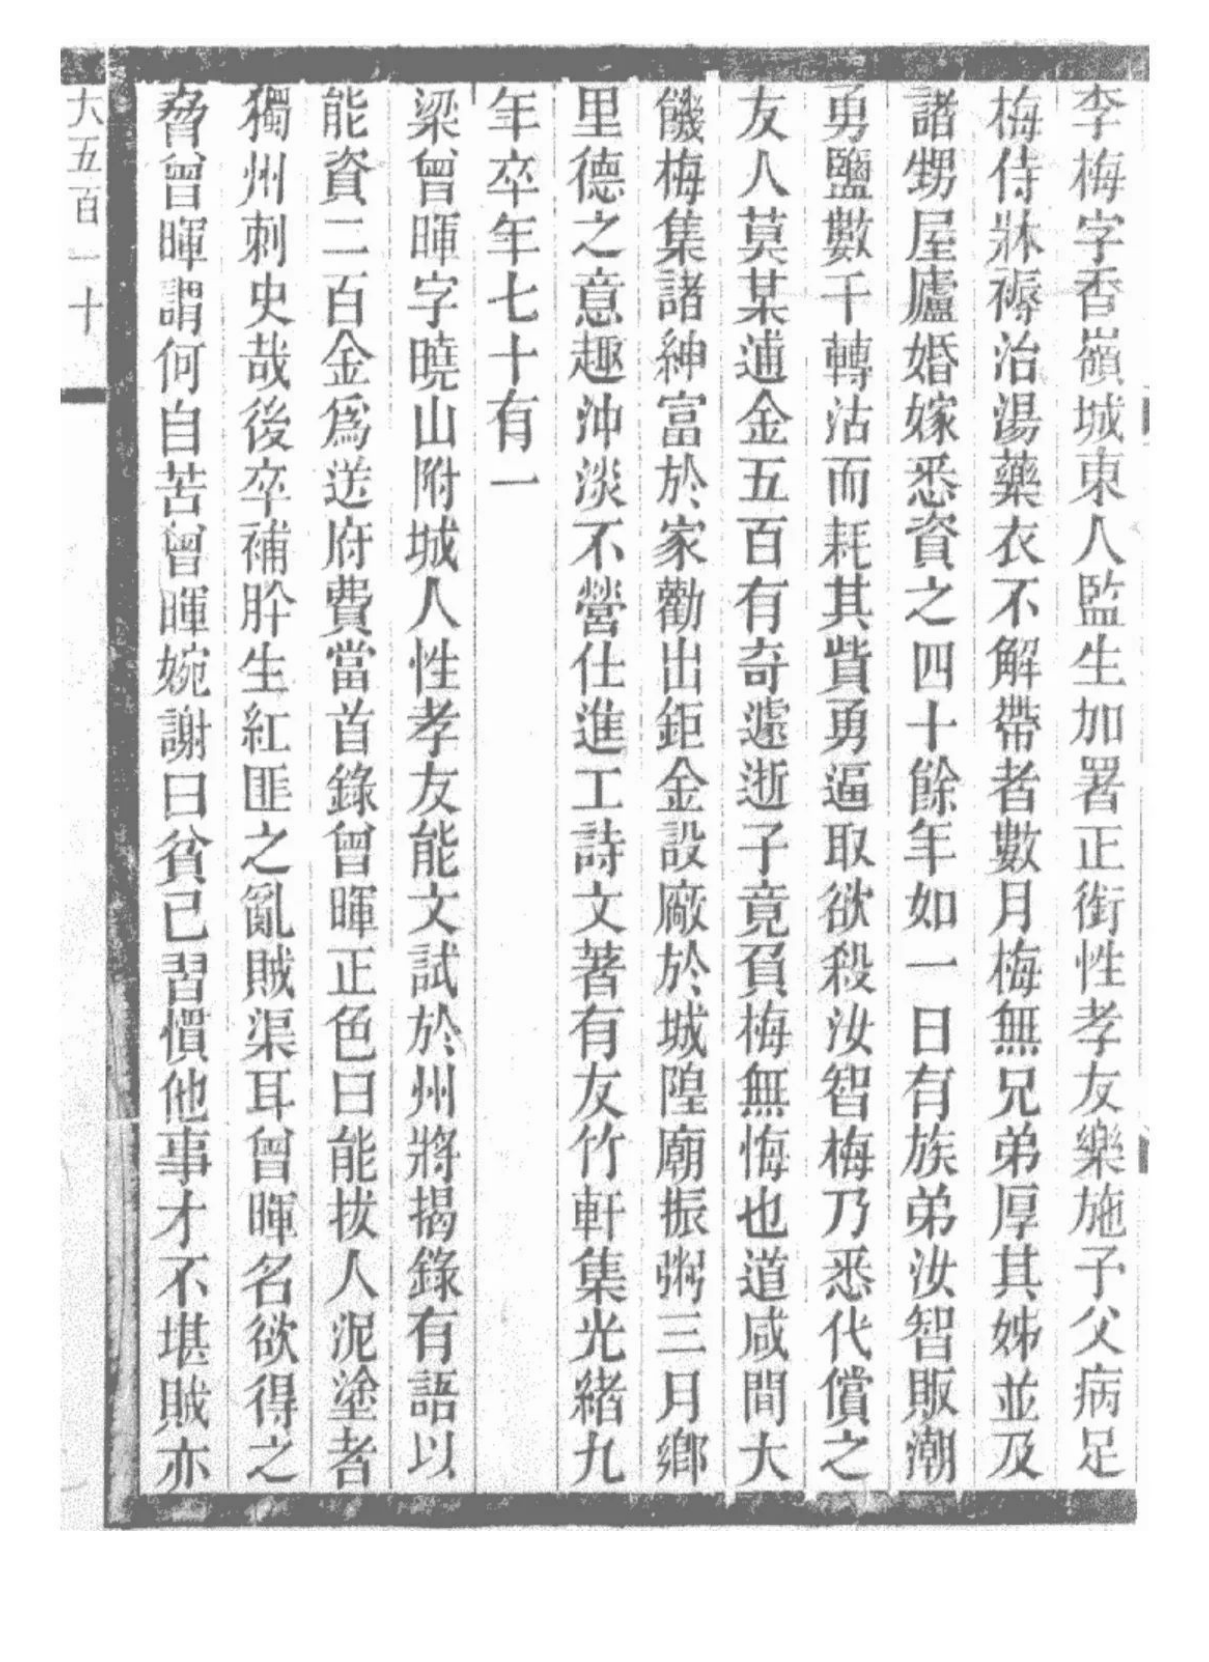 李梅字香嶺城東人監生加署正銜性孝友樂施予父病足
梅侍牀褥治湯藥衣不解帶者數月梅無兄弟厚其姊並及
諸甥屋廬婚嫁悉資之四十餘年如一日有族弟汝智販潮
勇鹽數千轉沽而耗其貲勇逼取欲殺汝智梅乃悉代償之
友人莫某逋金五百有奇遽逝子竟負梅無悔也道咸間大
饑梅集諸紳富於家勸出鉅金設廠於城隍廟振粥三月鄉
里德之意趣沖淡不營仕進工詩文著有友竹軒集光緒九
年卒年七十有一
梁曾暉字曉山附城人性孝友能文試於州將揭錄有語以
能資二百金爲送府費當首錄曾暉正色曰能拔人泥塗者
獨州刺史哉後卒補肸生紅匪之亂賊渠耳曾暉名欲得之
脅曾暉謂何自苦曾暉婉謝曰貧已習慣他事才不堪賊亦
大五百一十